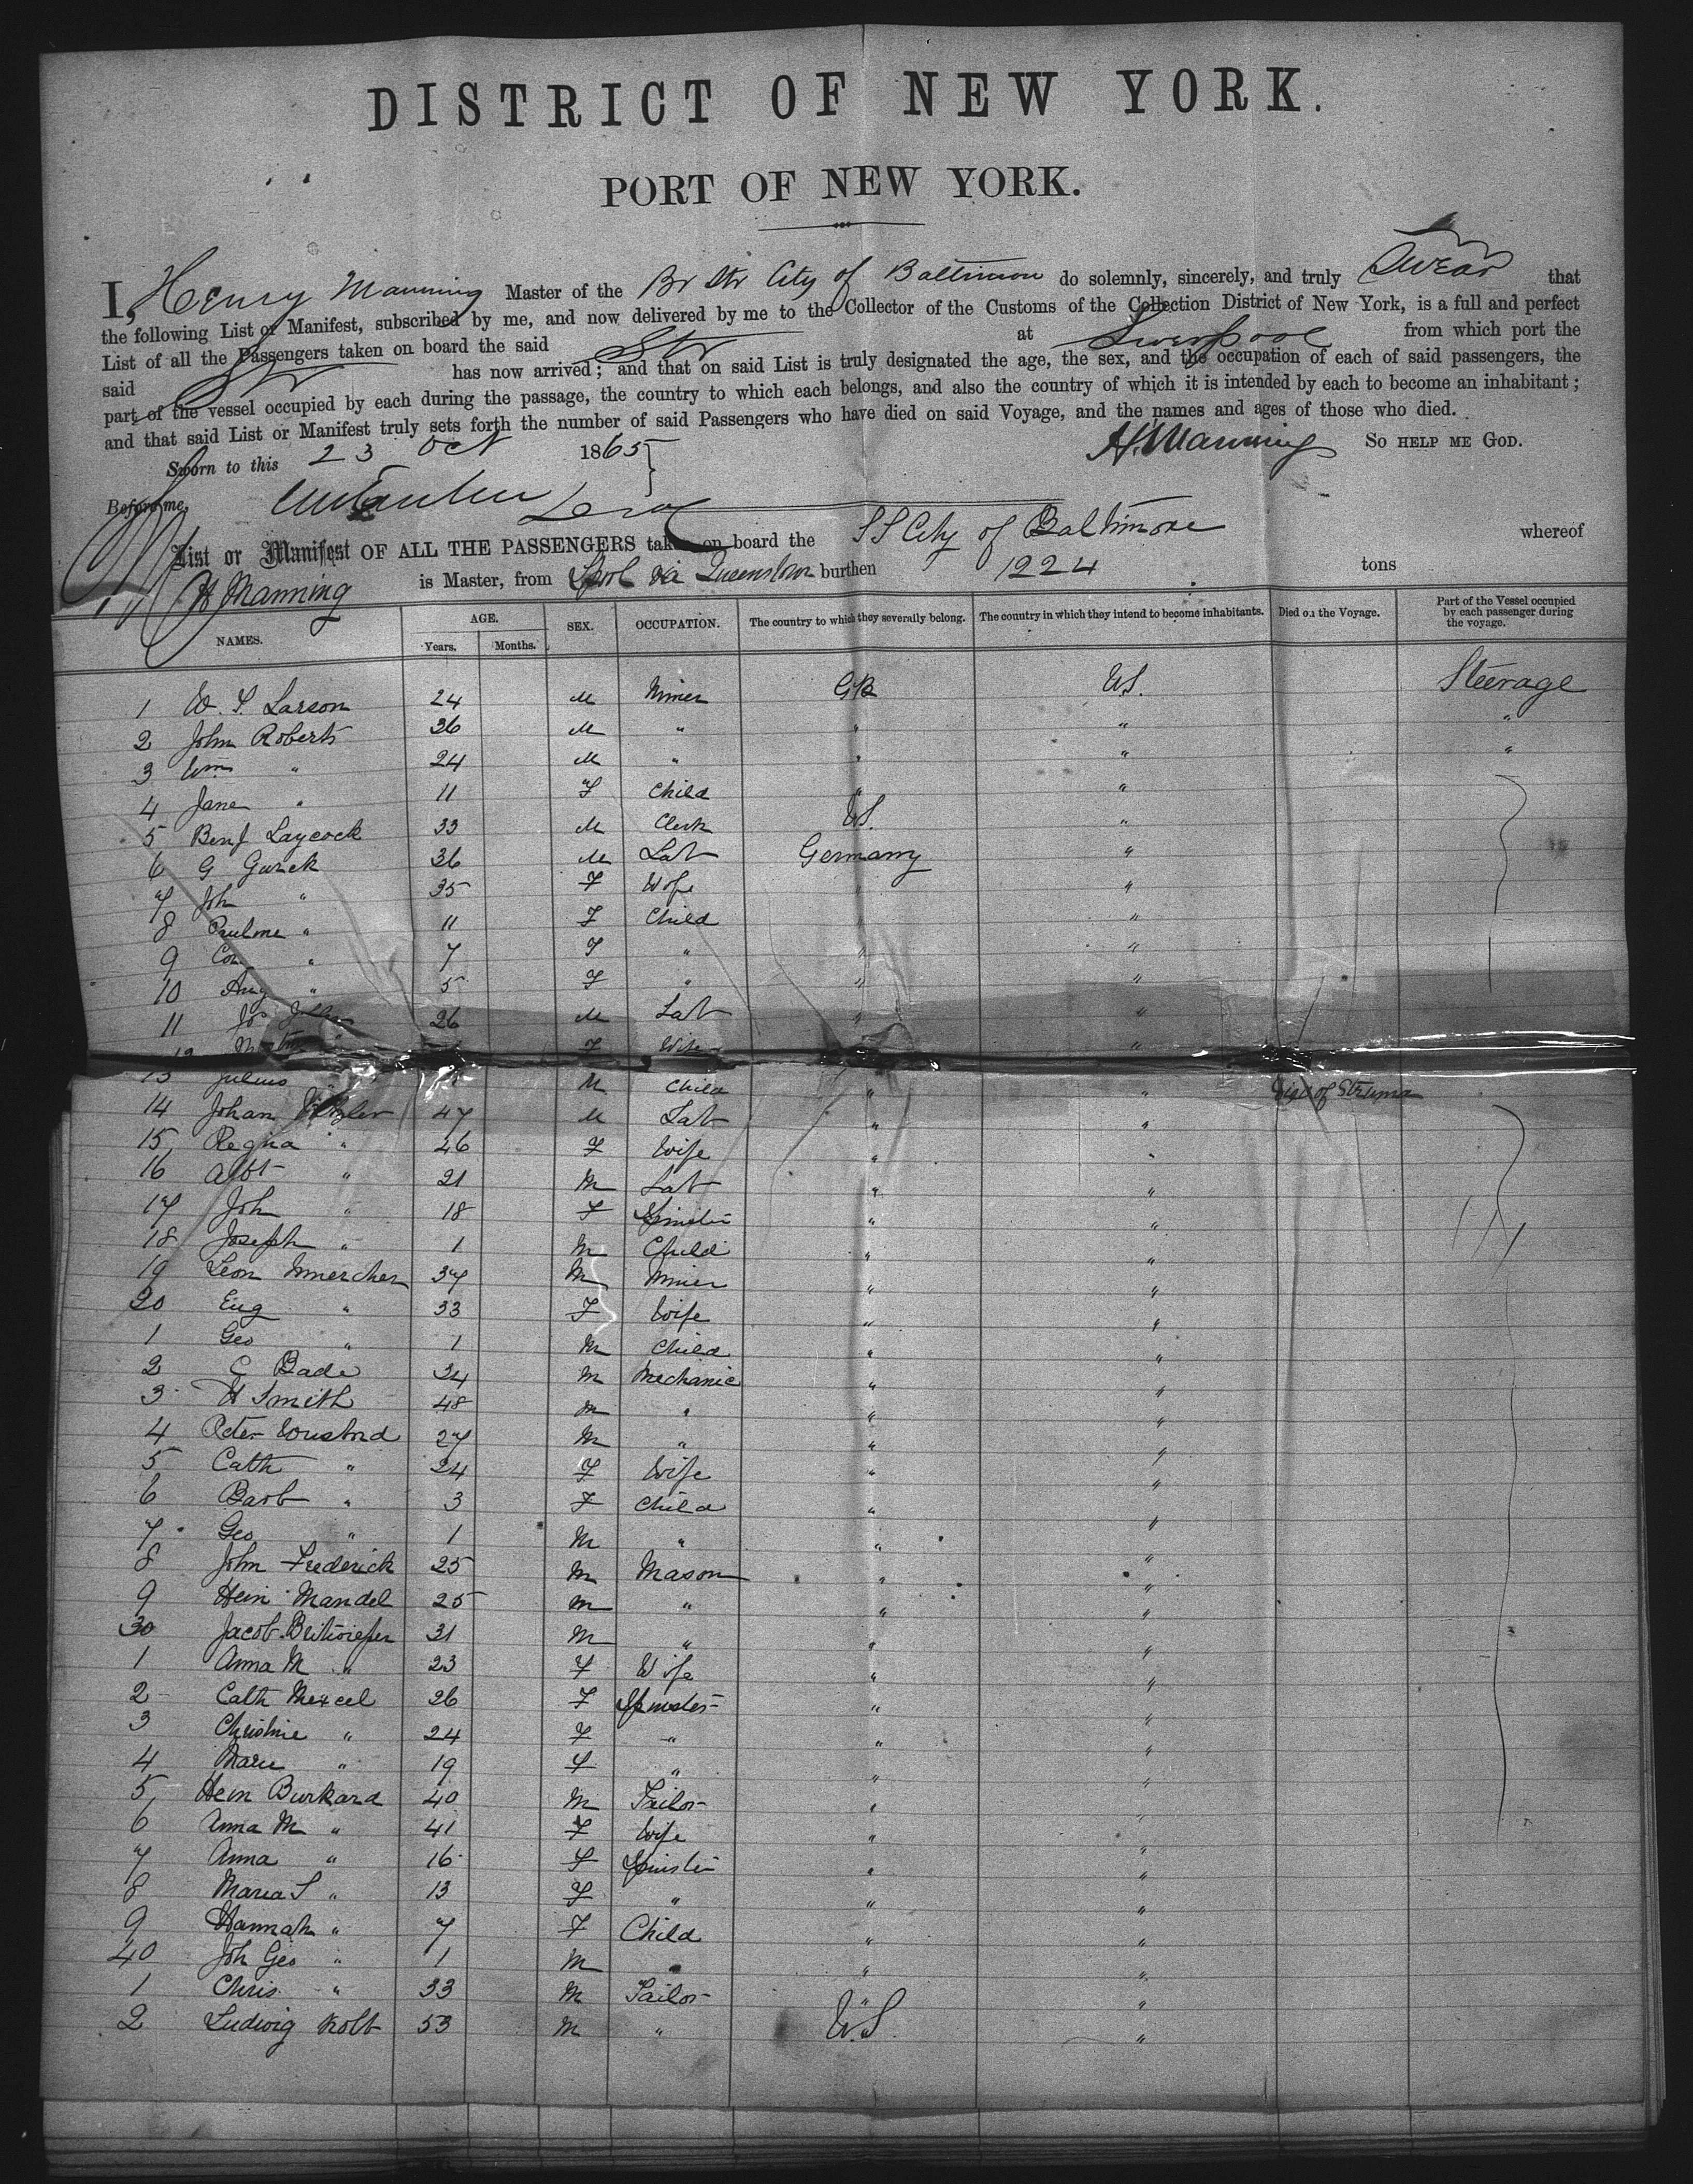 DISTRICT OF NEW YORK.
PORT OF NEW YORK.
I, Henry Manning Master of the Br Str City of Baltimore do solemnly, sincerely, and truly Swear that
the following List or Manifest, subscribed by me, and now delivered by me to the Collector of the Customs of the Collection District of New York, is a full and perfect
List of all the Passengers taken on board the said Str at Liverpool from which port the
said Str has now arrived; and that on said List is truly designated the age, the sex, and the occupation of each of said passengers, the
part of the vessel occupied by each during the passage, the country to which each belongs, and also the country of which it is intended by each to become an inhabitant;
and that said List or Manifest truly sets forth the number of said Passengers who have died on said Voyage, and the names and ages of those who died.
Sworn to this 23 Oct 1865 H. Manning SO HELP ME GOD.
Before me,
List or Manifest OF ALL THE PASSENGERS taken on board the SS City of Baltimore whereof
H Manning is Master, from Lpool via Queenstown burthen 1224 tons
NAMES. AGE. Years. Months. SEX. OCCUPATION. The country to which they severally belong. The country in which they intend to become inhabitants. Died on the Voyage. Part of the Vessel occupied by each passenger during the voyage.
1 W. S. Larson 24 M Miner GB US. Steerage
2 John Roberts 36 M " " " "
3 Wm " 24 M " " " "
4 Jane " 11 F Child " "
5 Benj Laycock 33 M Clerk US. "
6 G Gurek 36 M Lab Germany "
7 Joh " 35 F Wife " "
8 Pauline " 11 F Child " "
9 Con " 7 F " " "
10 Aug " 5 F " " "
11 Jos 26 M Lab " "
12 F Wife "
13 Julius " M Child " " Died of Struma
14 Johan 47 M Lab " "
15 Regina " 46 F Wife " "
16 Albt " 21 M Lab " "
17 Joh " 18 F Spinster " "
18 Joseph " 1 M Child " "
19 Leon Wmercher 37 M Miner " "
20 Eug " 33 F Wife " "
1 Geo " 1 M Child " "
2 C Bade 24 M Mechanic " "
3 H Smith 48 M " " "
4 Peter 27 M " " "
5 Cath " 24 F Wife " "
6 Barb " 3 F Child " "
7 Geo " 1 M " " "
8 John Frederick 25 M Mason " "
9 Hein Mandel 25 M " " "
30 Jacob 31 M " " "
1 Anna M " 23 F Wife " "
2 Cath Mexcel 26 F Spinster " "
3 Christine " 24 F " " "
4 Marie " 19 F " " "
5 Hein Burkard 40 M Tailor " "
6 Anna M " 41 F Wife " "
7 Anna " 16 F Spinster " "
8 Maria S " 13 F " " "
9 Hannah " 7 F Child " "
40 Joh Geo " 1 M " " "
1 Chris " 33 M Tailor " "
2 Ludwig Kolb 53 M " U.S. "